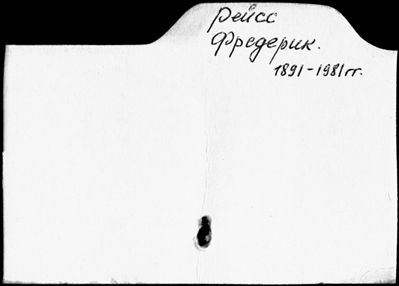 Рейсс
Фредерик.
1891-1981гг.